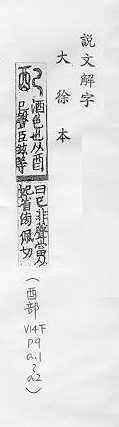 說文解字
大徐本
配
酒色也从酉
己聲臣鉉等
曰己非聲當从
妃省滂佩切
(酉部
V14下
p9
a.1
~
a2)